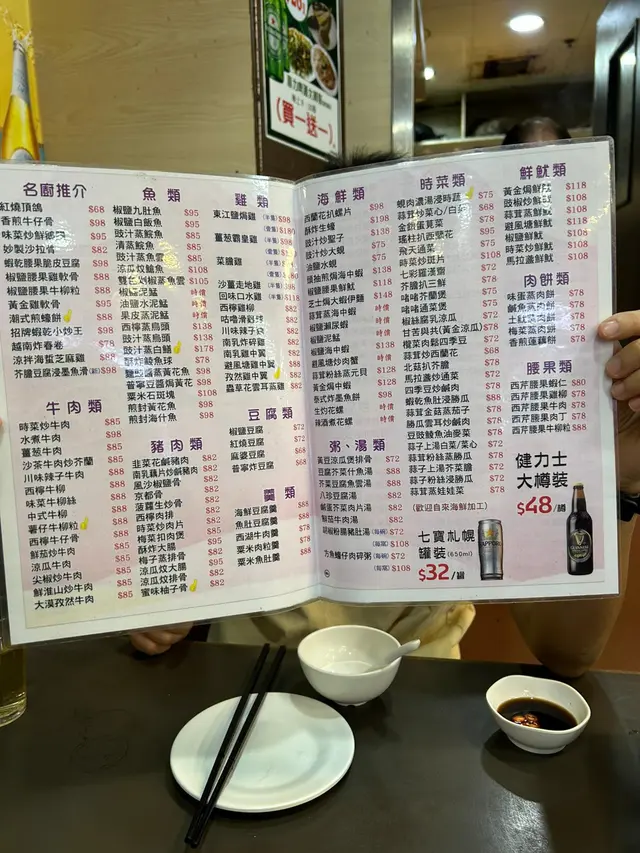 (買一送一)
名廚推介
紅燒頂鴿 $68
香煎牛仔骨 $98
味菜炒鮮
妙製沙拉骨
蝦乾椒鹽脆皮豆腐 $98
椒鹽腰果雞軟骨 $88
椒鹽腰果牛柳粒 $88
黃金雞軟骨 $88
潮式煎蠔餅 $88
招牌蝦乾小炒王 $98
越南炸春卷 $78
涼拌海蜇芝麻雞 $88
芥膽豆腐浸墨魚滑 $98
牛肉類
時菜炒牛肉 $85
水煮牛肉 $98
薑葱牛肉 $85
沙茶牛肉炒芥蘭 $85
川味辣子牛肉 $85
西檸牛柳
味菜牛柳絲
中式牛柳
薯仔牛柳粒
西檸牛仔骨
鮮茄炒牛肉 $85
涼瓜牛肉 $85
尖椒炒牛肉 $85
鮮淮山炒牛肉 $85
大漠孜然牛肉 $85
魚類
椒鹽九肚魚 $95
椒鹽白飯魚 $95
豉汁蒸鯇魚 $85
清蒸鯇魚 $85
豉汁蒸魚雲 $85
涼瓜炆鯰魚 $108
雙色剁椒蒸魚雲 $105
椒鹽泥鯭 時價
油鹽水泥鯭 時價
果皮蒸泥鯭 時價
西檸蒸烏頭 $138
豉汁蒸烏頭 $138
豉汁蒸白鱔 $178
酥炸鯪魚球 $78
鹽蒸黃花魚 $98
普寧豆醬焗黃花 $98
粟米石斑塊 $108
煎封黃花魚 $98
煎封海什魚 $98
豬肉類
韭菜花鹹豬肉 $82
南乳藕片炒鹹豬肉 $82
風沙椒鹽骨 $82
京都骨 $82
菠蘿生炒骨 $82
西檸肉排 $82
時菜炒肉片 $82
梅菜扣肉煲 $95
酥炸大腸 $95
梅子蒸排骨 $82
涼瓜炆大腸 $95
涼瓜炆排骨 $82
蜜味柚子骨 $82
雞類
東江鹽焗雞 $98
薑葱霸皇雞
菜膽雞
沙薑走地雞
回味口水雞
西檸雞柳 $82
咕嚕滑雞球 $82
川味辣子雞 $82
南乳炸碎雞 $82
南乳雞中翼 $82
避風塘雞中翼 $88
孜然雞中翼 $82
蟲草花雲耳蒸雞 $82
豆腐類
椒鹽豆腐 $72
紅燒豆腐 $72
麻婆豆腐 $68
普寧炸豆腐 $68
羹類
海鮮豆腐羹 $88
魚肚豆腐羹 $88
西湖牛肉羹 $78
粟米肉粒羹 $78
粟米魚肚羹 $88
海鮮類
西蘭花扒螺片 $98
酥炸生蠔 $198
豉汁炒聖子 $138
豉汁炒大蜆 $75
油鹽水蜆 $75
頭抽煎焗海中蝦 $138
椒鹽腰果鮮魷 $118
芝士焗大蝦伊麵 $148
蒜蓉蒸海中蝦 $138
椒鹽瀨尿蝦 時價
椒鹽泥鯭 時價
椒鹽海中蝦 $138
避風塘炒肉蟹 時價
蒜蓉粉絲蒸元貝 $128
黃金焗中蝦 $138
泰式炸墨魚餅 $98
生灼花螺 時價
辣酒煮花螺 時價
粥、湯類
黃豆涼瓜煲排骨 $72
豆腐芥菜什魚湯 $88
芫荽豆腐魚雲湯 $88
八珍豆腐湯 $82
鹹蛋芥菜肉片湯 $72
鮮茄牛肉湯 $82
胡椒粉腸豬肚湯 (每碗) $72
(每窩) $108
方魚蠔仔肉碎粥 (每碗) $72
(每窩) $108
時菜類
蜆肉濃湯浸時蔬 $75
蒜茸炒菜心/白菜 $68
金銀蛋莧菜 $78
瑤柱扒節瓜 $95
飛天通菜 $75
時菜炒肉片 $82
七彩羅漢齋 $72
芥膽扒三鮮 $78
啫啫芥蘭煲 $75
啫啫通菜煲 $75
椒絲腐乳涼瓜 $72
甘苦與共(黃金涼瓜) $78
欖菜肉鬆四季豆 $72
蒜茸炒西蘭花 $68
北菇扒芥膽 $78
馬拉盞炒通菜 $72
四季豆炒鹹肉 $82
蝦乾魚肚浸勝瓜 $88
蒜茸金菇蒸茄子 $78
勝瓜雲耳炒鹹肉 $78
豆豉鯪魚油麥菜 $78
蒜子上湯白菜/菜心 $72
蒜子上湯芥菜膽 $72
蒜子粉絲浸勝瓜 $72
蒜茸粉絲蒸勝瓜 $78
蒜茸蒸娃娃菜 $78
(歡迎自來海鮮加工)
鮮魷類
黃金焗鮮魷 $118
豉椒炒鮮魷 $108
蒜茸蒸鮮魷 $108
避風塘鮮魷 $118
椒鹽鮮魷 $108
時菜炒鮮魷 $108
馬拉盞鮮魷 $108
肉餅類
味蛋蒸肉餅 $78
鹹魚蒸肉餅 $78
土魷蒸肉餅 $78
梅菜蒸肉餅 $78
香煎蓮藕餅 $78
腰果類
西芹腰果蝦仁 $80
西芹腰果雞柳 $78
西芹腰果牛肉 $78
西芹腰果肉丁 $78
西芹腰果牛柳粒 $88
健力士
大樽裝
$48/樽
七寶札幌
罐裝(650ml)
$32/罐